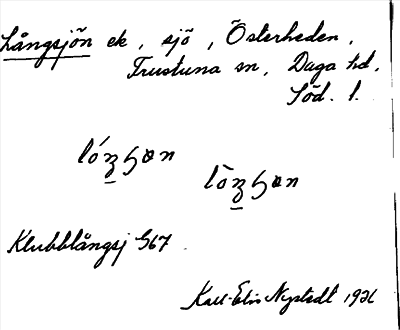 Långsjön ek, sjö, Österheden,
Frustuna sn, Daga hd.
Söd. l.
Klubblångsj G67
Karl-Elis Nystedt 1926